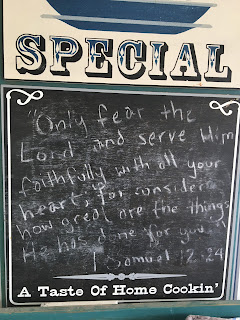 SPECIAL
"Only fear the
Lord and serve Him
faithfully with all your
heart, for consider
how great are the things
He has done for you.
1 Samuel 12:24
A Taste Of Home Cookin'